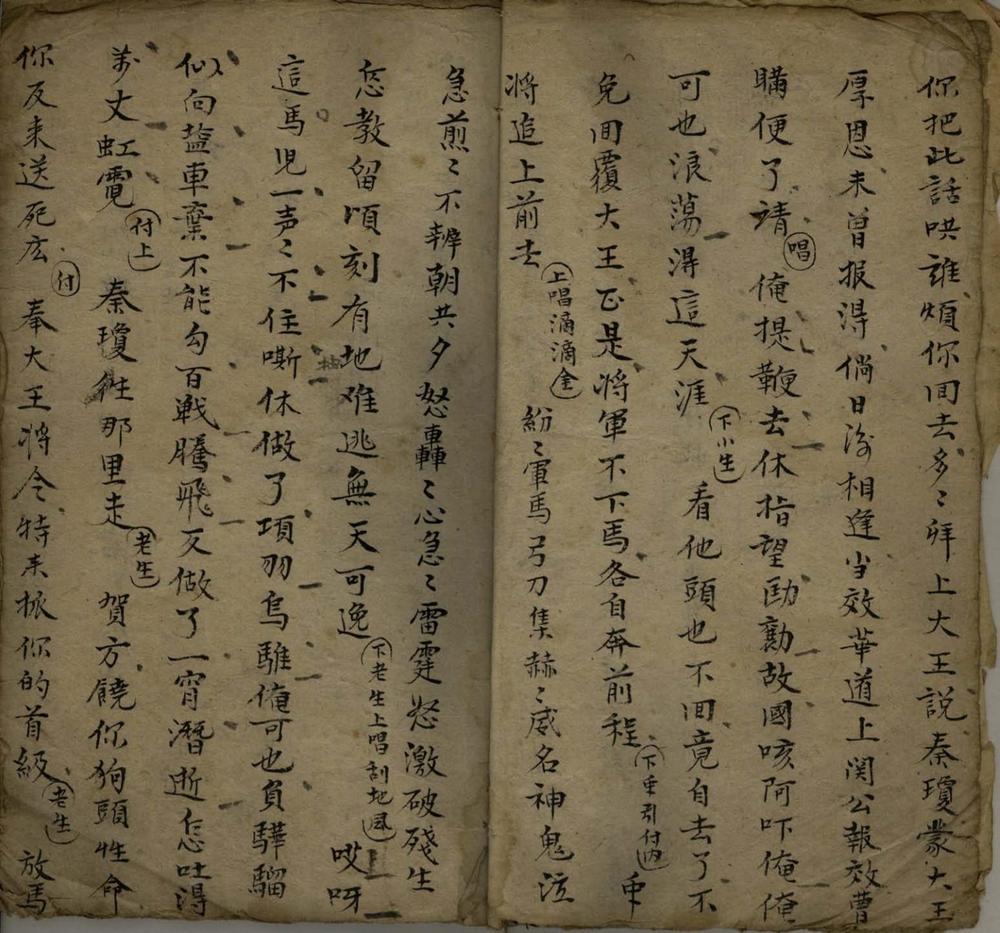 你把此話哄誰煩你囬去多〻拜上大王說秦瓊蒙大王
厚恩未曾报淂倘日後相逢当效華道上関公報效曹
瞞便了請(唱)俺提鞭去休指望勸故國咳阿吓俺俺
可也浪蕩淂這天涯(下小生)看他頭也不囬竟自去了不
免囬覆大王正是将軍不下馬各自奔前程(下末引付内)
将追上前去(上唱滴滴金)紛〻軍馬弓刀集赫〻威名神鬼泣
急煎〻不辨朝共夕怒轟〻心急〻雷霆怒激破殘生
怎教留頃刻有地难逃無天可逸(下老生上唱刮地風)哎呀
這馬児一声〻不住嘶休做了項羽烏騅俺可也負驊騮
似向盐車棄不能勾百戦騰飛反做了一宵潛逝怎吐得
萬丈虹霓(付上)秦瓊往那里走(老生)賀方饒你狗頭性命
你反来送死庅(付)奉大王将令特来取你的首級(老生)放馬